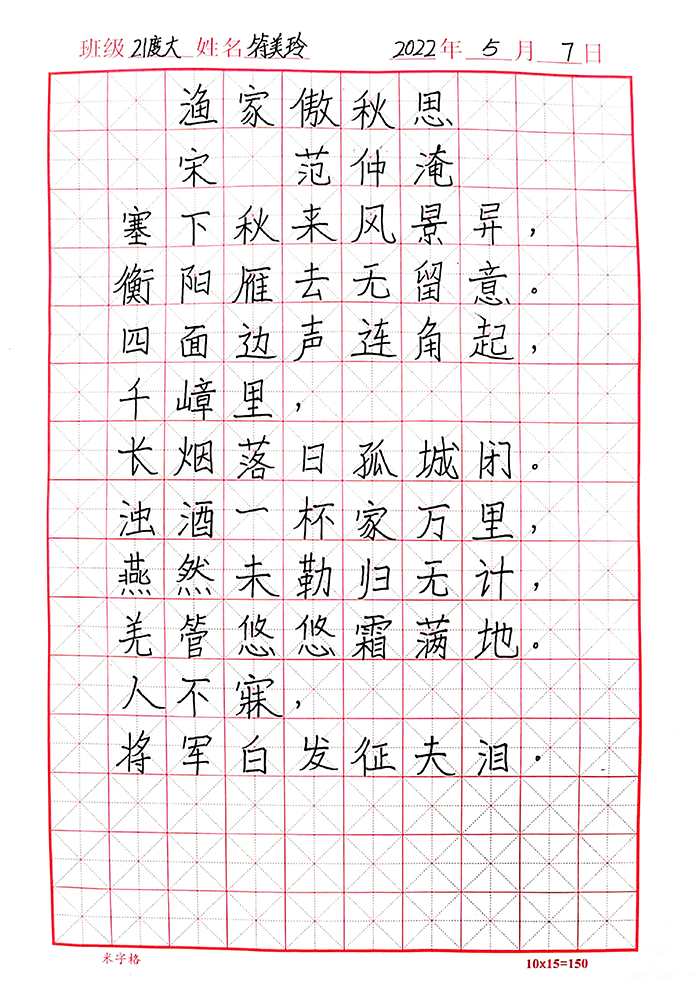 班级 21度大 姓名 符美玲 2022年 5 月 7 日
渔家傲秋思
宋 范仲淹
塞下秋来风景异，
衡阳雁去无留意。
四面边声连角起，
千嶂里，
长烟落日孤城闭。
浊酒一杯家万里，
燕然未勒归无计，
羌管悠悠霜满地。
人不寐，
将军白发征夫泪.
米字格 10x15=150